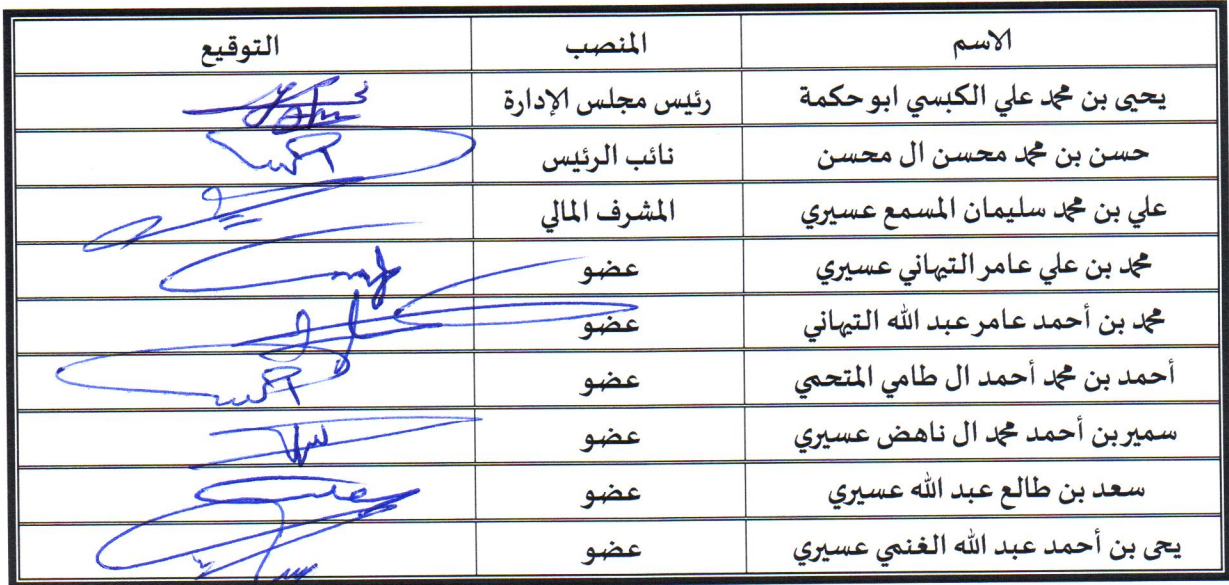 الاسم المنصب التوقيع
يحيى بن محمد علي الكبسي ابو حكمة رئيس مجلس الإدارة
حسن بن محمد محسن ال محسن نائب الرئيس
علي بن محمد سليمان المسمع عسيري المشرف المالي
محمد بن علي عامر التيهاني عسيري عضو
محمد بن أحمد عامر عبد الله التيهاني عضو
أحمد بن محمد أحمد ال طامي المتحمي عضو
سمير بن أحمد محمد ال ناهض عسيري عضو
سعد بن طالع عبد الله عسيري عضو
يحى بن أحمد عبد الله الغنمي عسيري عضو